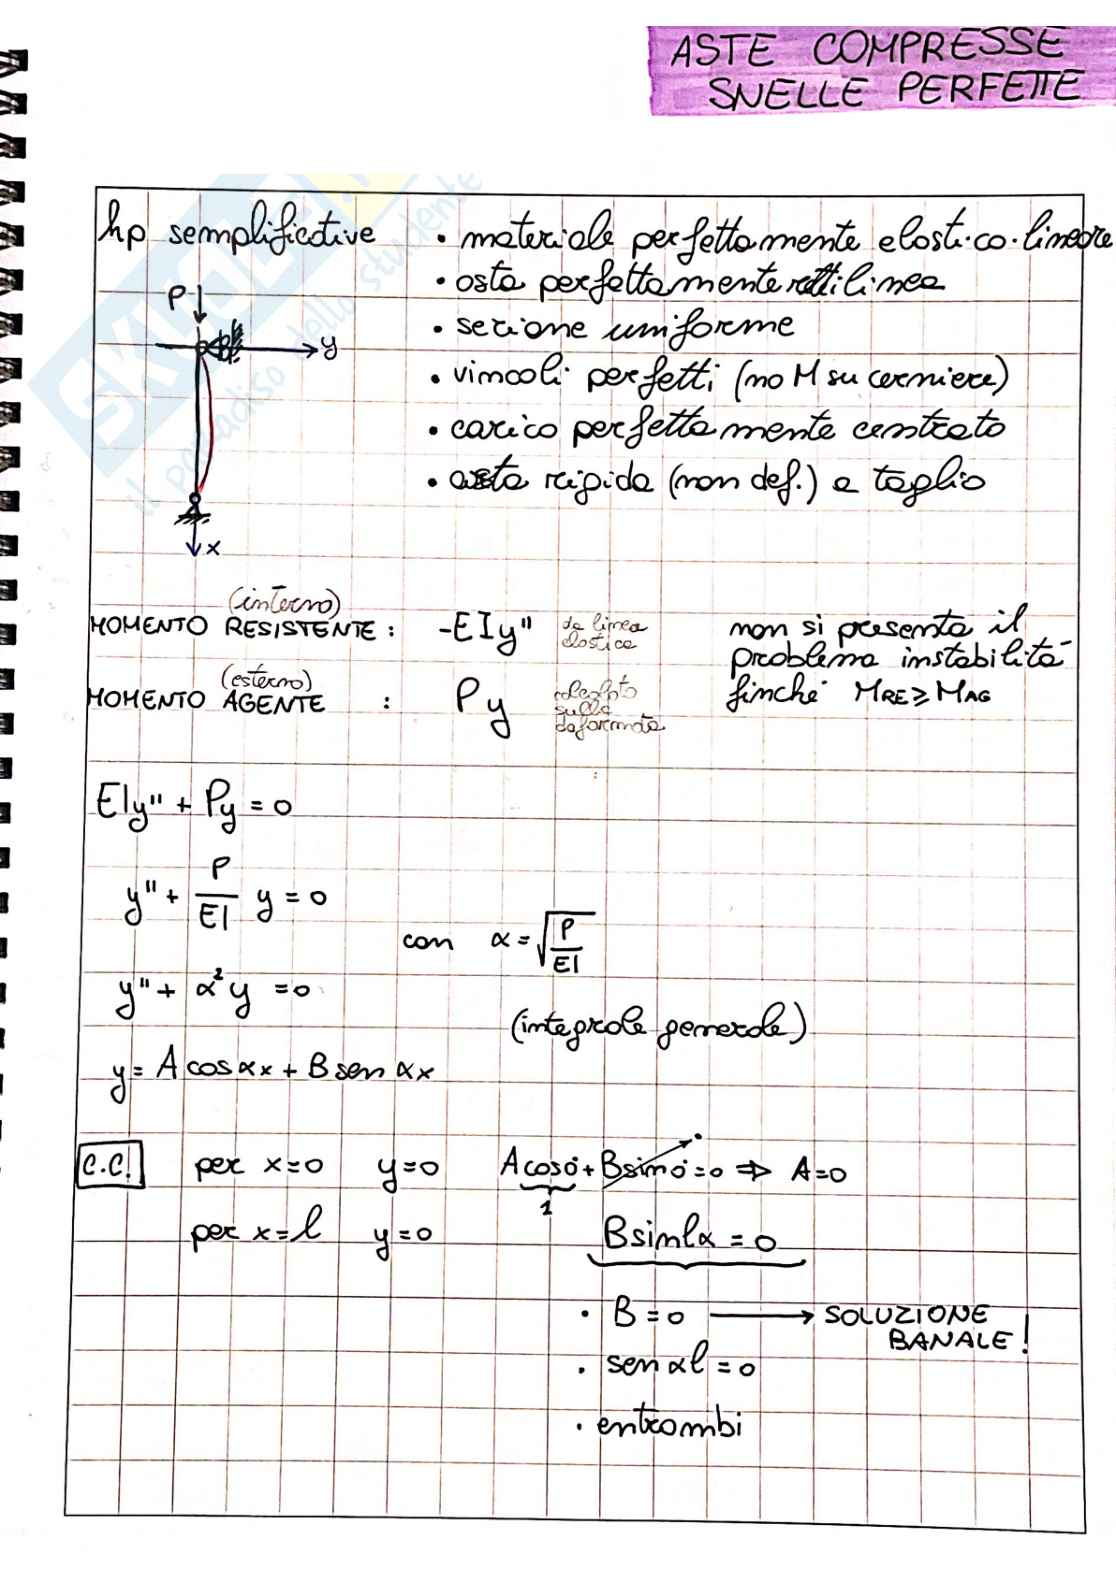 ASTE COMPRESSE
SNELLE PERFETTE
hp semplificative
• materiale perfettamente elastico-lineare
• asta perfettamente rettilinea
• sezione uniforme
• vincoli perfetti (no M su cerniere)
• carico perfettamente centrato
• asta rigida (non def.) a taglio
P
y
x
SKUOLA
il paradiso dello studente
(interno)
MOMENTO RESISTENTE : -EIy" da linea elastica
(esterno)
MOMENTO AGENTE : Py calcolato sulla deformata
non si presenta il
problema instabilità
finché MRE ≥ MAG
EIy" + Py = 0
y" + P/EI y = 0
con α = √P/EI
y" + α² y = 0
(integrale generale)
y = A cos αx + B sen αx
C.C. per x=0 y=0 A cos0 + B sin0 = 0 ⇒ A=0
1
per x=l y=0 B sin lα = 0
• B = 0 → SOLUZIONE
BANALE!
• sen αl = 0
• entrambi